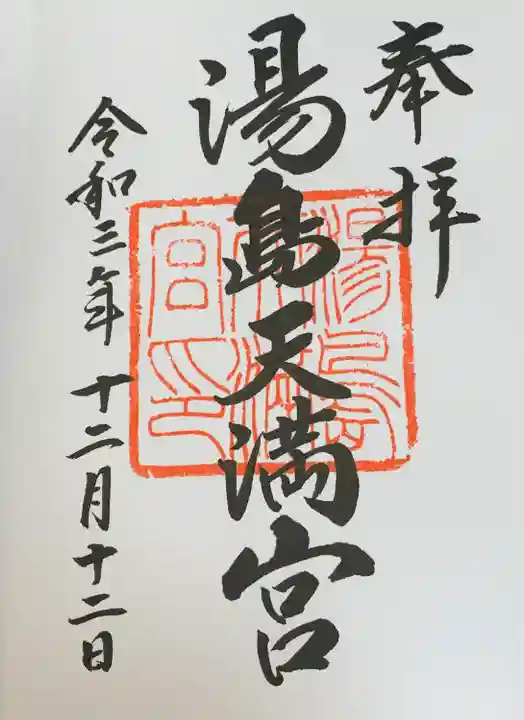 奉拝
湯島天満宮
令和三年十二月十二日
湯島天満宮之印